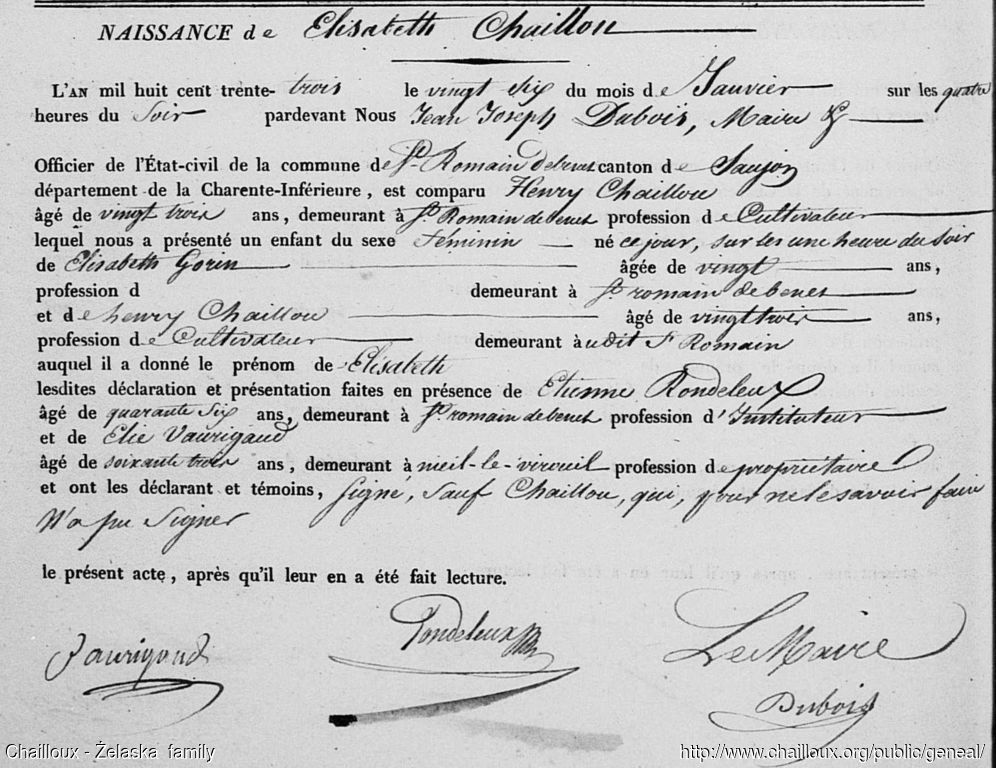 NAISSANCE de Elisabeth Chaillou
L'AN mil huit cent trente-trois le vingt six du mois de Janvier sur les quatre
heures du Soir pardevant Nous Jean Joseph Dubois, Maire &
Officier de l'État-civil de la commune de St Romain de benet canton de Saujon
département de la Charente-Inférieure, est comparu Henry Chaillou
âgé de vingt trois ans, demeurant à St Romain de benet profession de Cultivateur
lequel nous a présenté un enfant du sexe féminin né ce jour, sur les une heure du Soir
de Elisabeth Gorin âgée de vingt ans,
profession d demeurant à St romain de benet
et de henry Chaillou âgé de vingt trois ans,
profession de Cultivateur demeurant à udit St Romain
auquel il a donné le prénom de Elisabeth
lesdites déclaration et présentation faites en présence de Etienne Rondeleux
âgé de quarante Six ans, demeurant à St romain de benet profession d'Instituteur
et de Elie Vaurigaud
âgé de soixante trois ans, demeurant à nieil-le-viroeuil profession de propriétaire
et ont les déclarant et témoins, Signé, Sauf Chaillou, qui, pour ne le savoir faire
N'a pu Signer
le présent acte, après qu'il leur en a été fait lecture.
Vaurigaud Rondeleux Le Maire
Dubois
Chailloux - Želaska family http://www.chailloux.org/public/geneal/